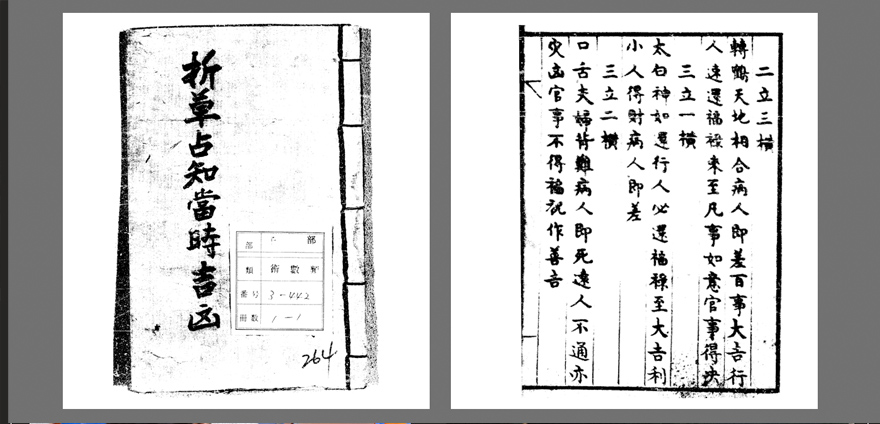 折草占知當時吉凶
部 部
類 術數類
番号 3-442
冊数 1-1
264
二立三横
轉鶴天地相合病人即差百事大吉行
人速還福祿来至凡事如意官事得决
三立一横
太白神如還行人必還福祿至大吉利
小人得財病人即差
三立二横
口舌夫婦皆難病人即死遠人不通亦
灾凶官事不得福祝作善吉